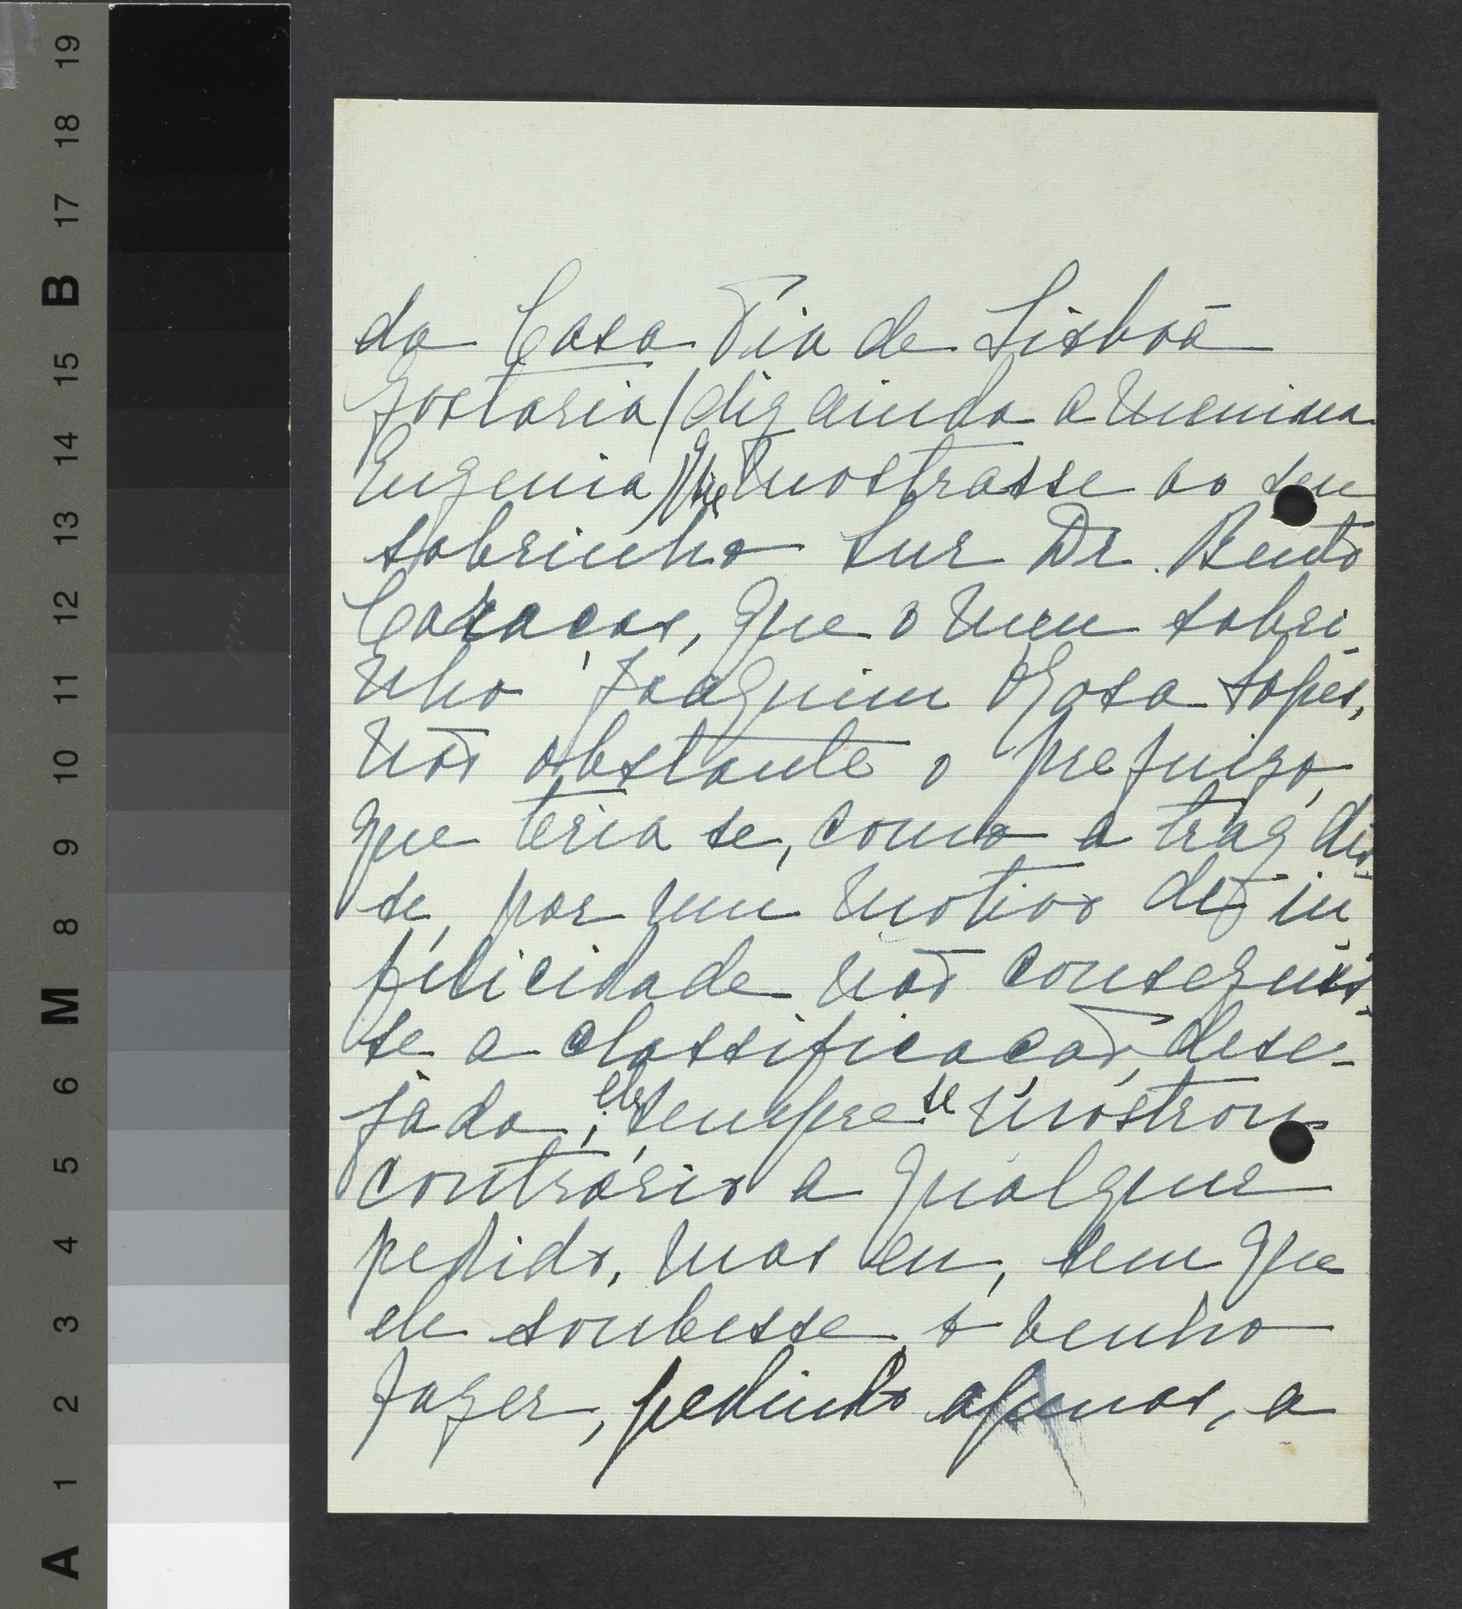 da Casa Pia de Lisboa
Gostaria (diz ainda a menina
Eugenia) que mostrasse ao seu
sobrinho Snr Dr. Bento
Caraças, que o meu sobri
nho Joaquim Rosa Lopes,
não obstante o prejuizo,
que teria se, como atraz dis
se, por um motivo de in
felicidade não conseguis
se a classificação dese-
jada, ele sempre se mostrou
contrário a qualquer
pedido, mas eu, sem que
ele soubesse o venho
fazer, pedindo apenas, a
A 1 2 3 4 5 6 M 8 9 10 11 12 13 14 15 B 17 18 19